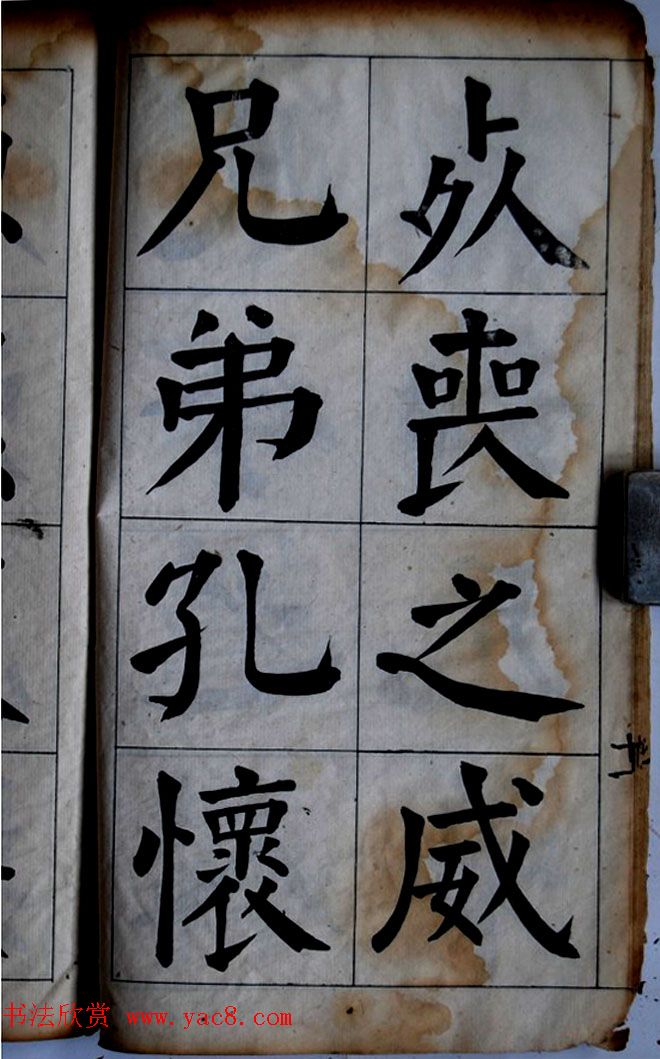 死喪之威
兄弟孔懷
书法欣赏 www.yac8.com